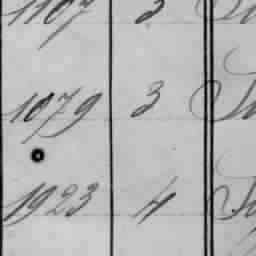 1107 3
1079 3
1923 4